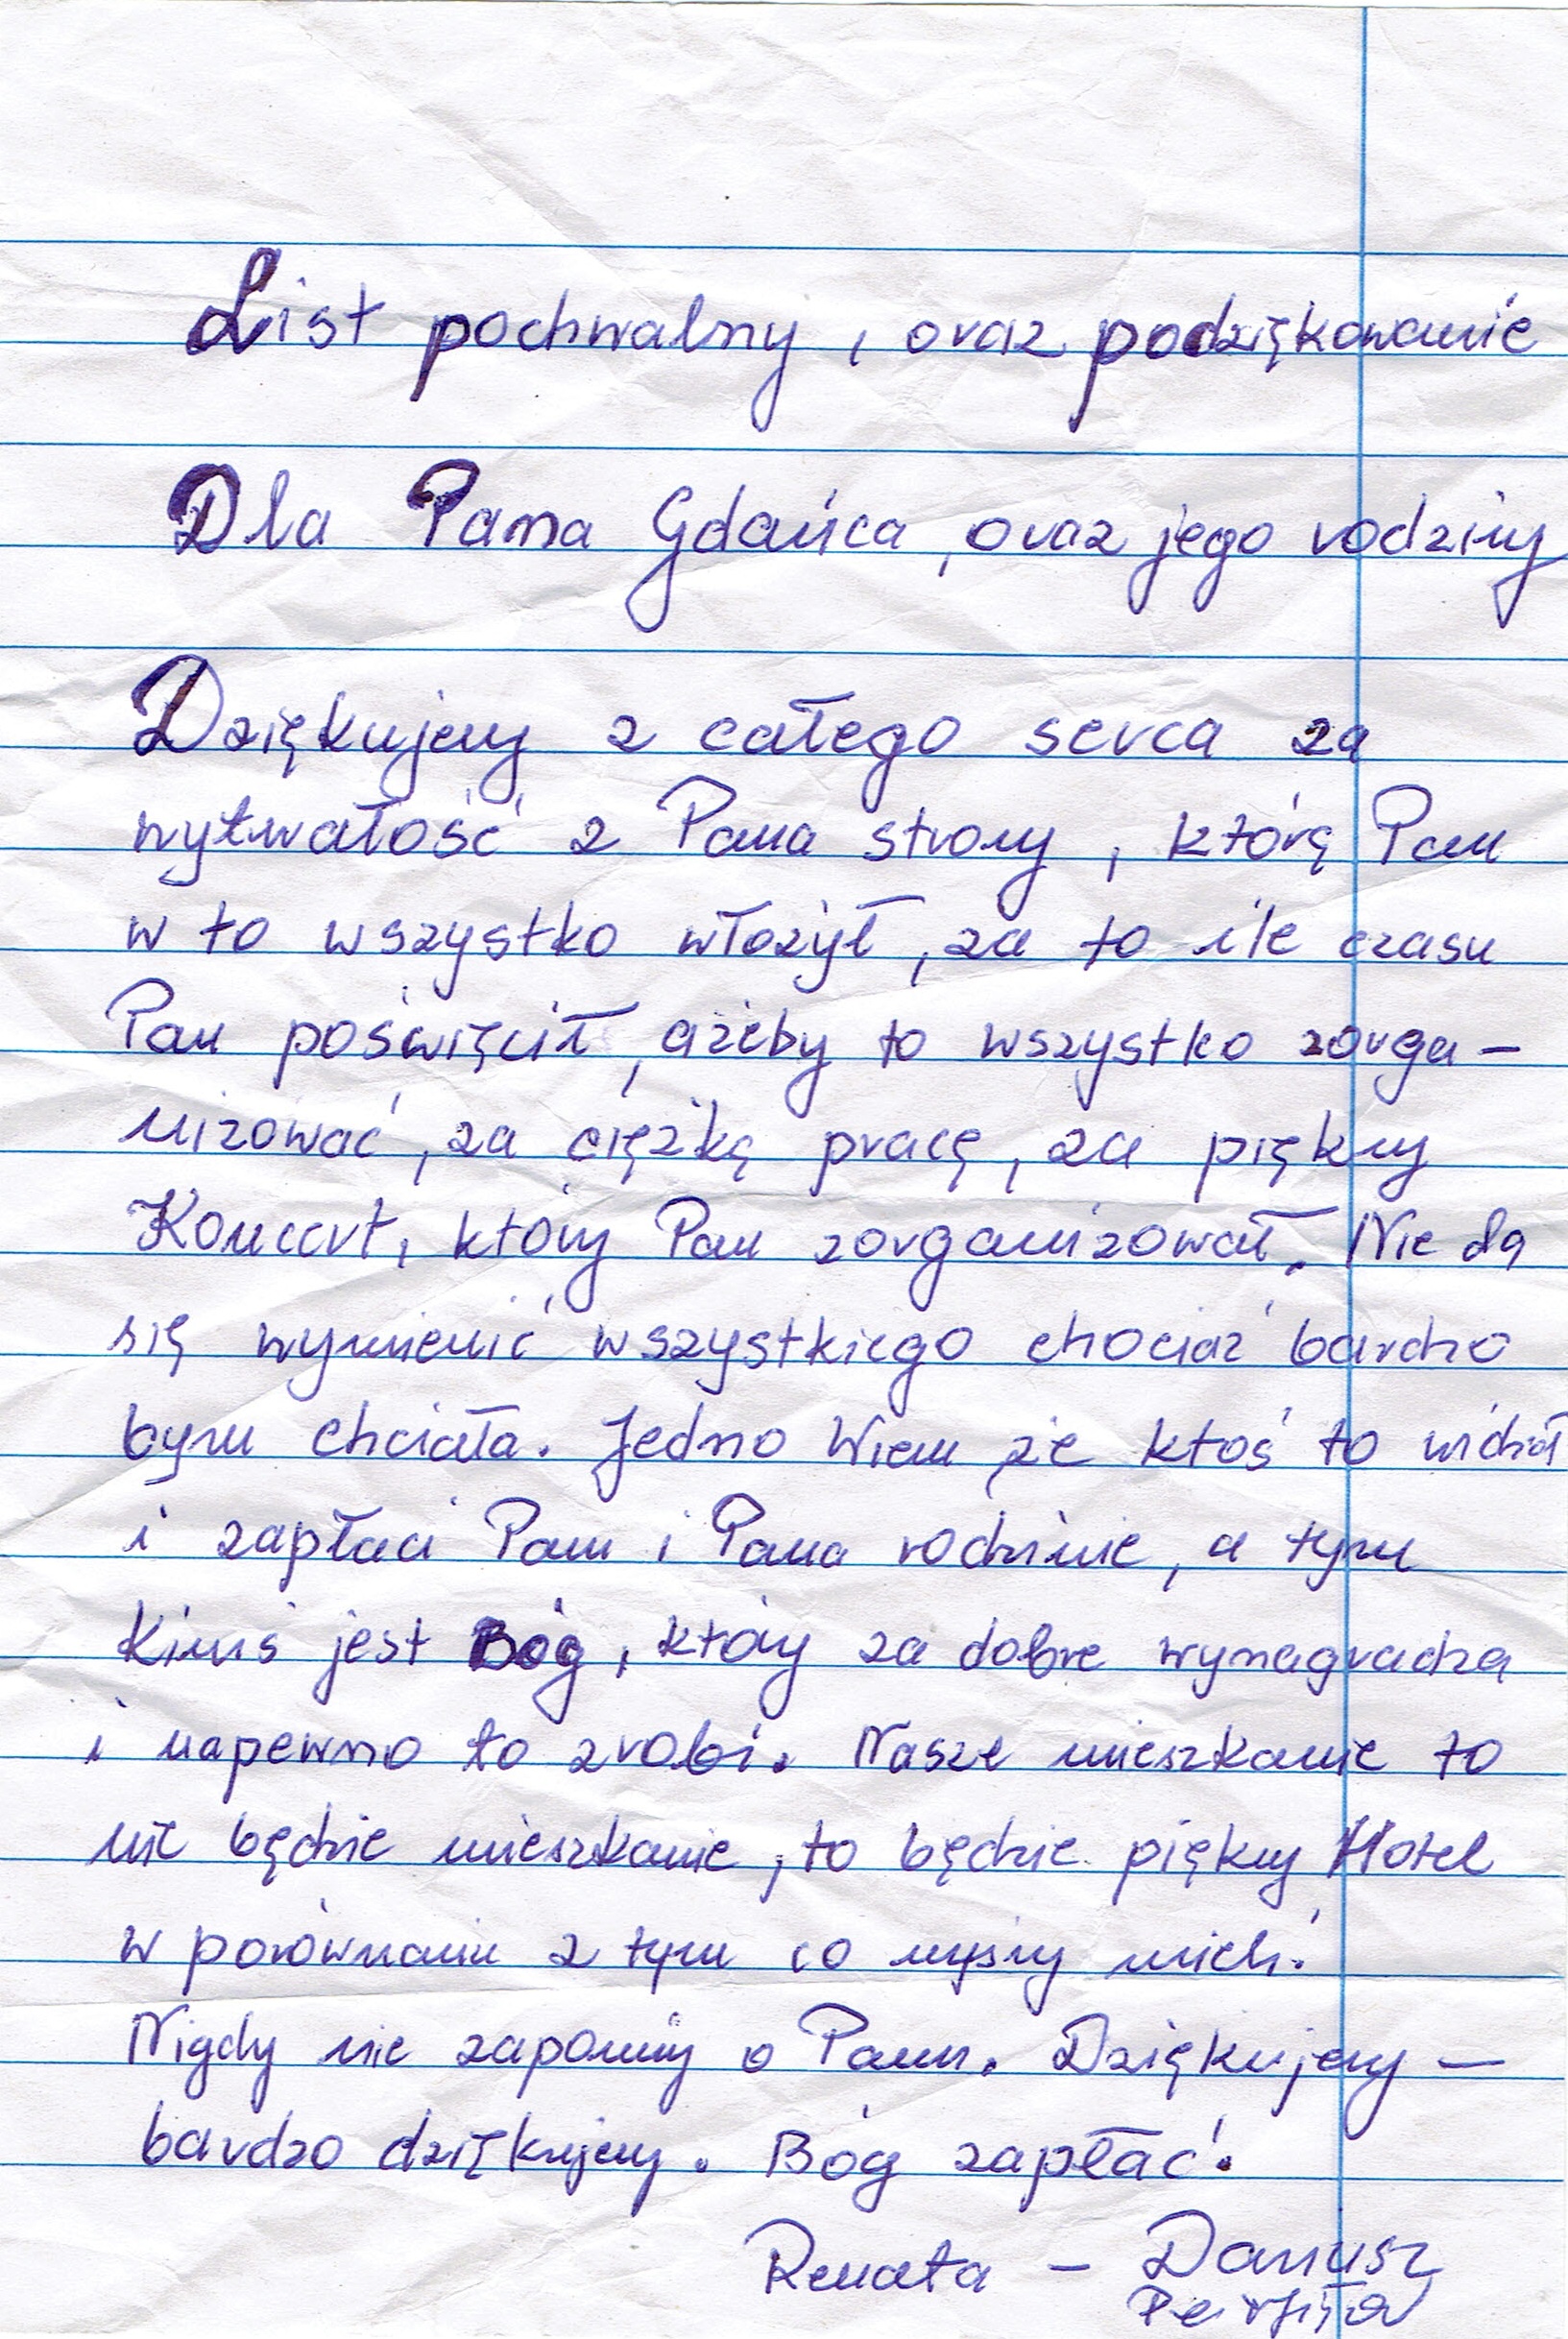 List pochwalny, oraz podziękowanie
Dla Pana Gdańca, oraz jego rodziny
Dziękujemy z całego serca za
wytwałość z Pana strony, którą Pan
w to wszystko włożył, za to ile czasu
Pan poświęcił, ażeby to wszystko zorga-
nizować, za ciężką pracę, za piękny
Koncert, który Pan zorganizował. Nie da
się wymienić wszystkiego chociaż bardzo
bym chciała. Jedno Wiem że ktoś to widział
i zapłaci Panu i Pana rodzinie, a tym
Kimś jest Bóg, który za dobre wynagradza
i napewno to zrobi. Nasze mieszkanie to
nie będzie mieszkanie, to będzie piękny Hotel
w porównaniu z tym co myśmy mieli.
Nigdy nie zapomnę o Panu. Dziękujemy –
bardzo dziękujemy. Bóg zapłać.
Renata – Dariusz